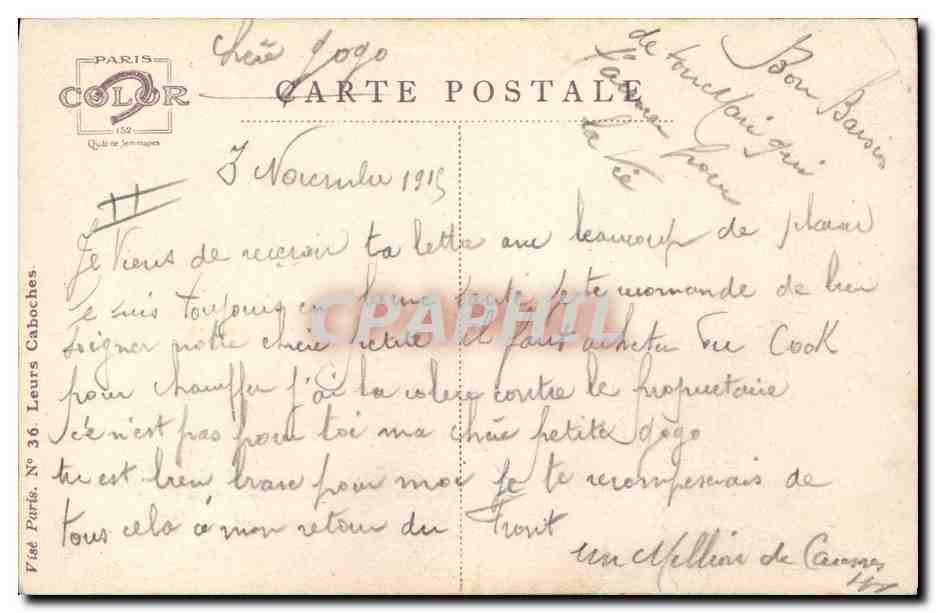 PARIS
COLOR
152
Quai de Jemmapes
chère gogo
CARTE POSTALE
Bon Baisies
de ton Mari qui
t'aiman pour
la vie
3 Novembre 1915
Je viens de recevoir ta lettre avec beaucoup de plaisir
je suis toujours en bonne santé je te recomande de bien
soigner notre chère petite il faut acheter du Cook
pour chauffer j'ai la colère contre le propriétaire
ce n'est pas pour toi ma chère petite gogo
tu est bien brave pour moi je te recompenserais de
tous cela a mon retour du Front
un Million de Caresses
Visé Paris. N° 36. Leurs Caboches.
CPAPHIL